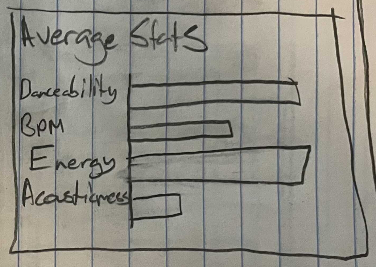 Average Stats
Danceability
BPM
Energy
Acousticness